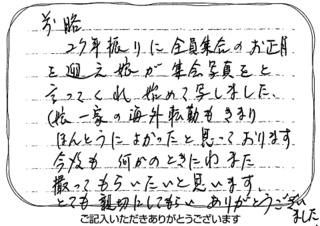 前略
27年振りに全員集合のお正月
を迎え娘が集合写真をと
言ってくれ始めて写しました。
(娘一家の海外転勤もきまり
ほんとうによかったと思っております
今後も何かのときにわまた
撮ってもらいたいと思います。
とても親切にしてもらいありがとうござい
ました
ご記入いただきありがとうございます